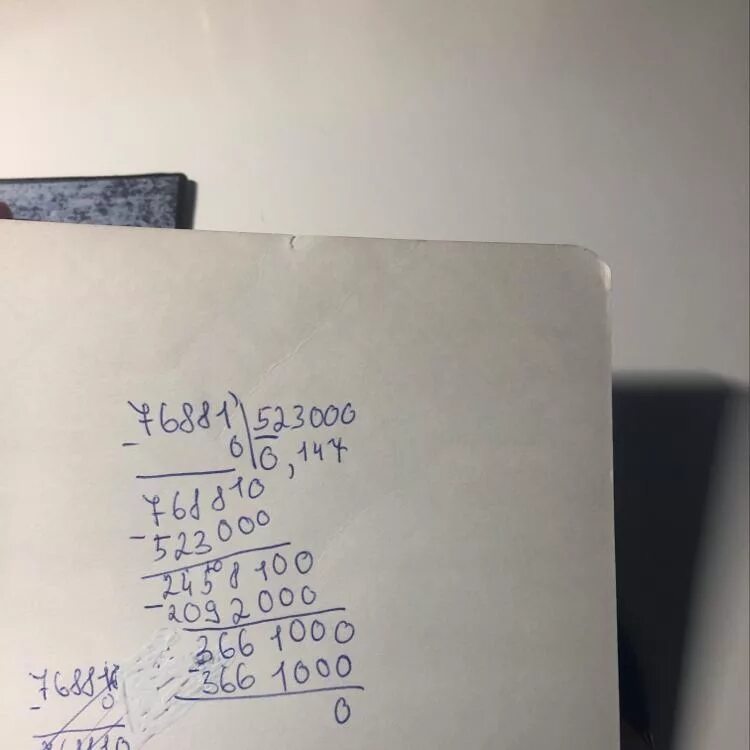 76881 523000
- 0 0,147
768810
- 523000
2458100
- 2092000
3661000
- 3661000
0
76881
- 0